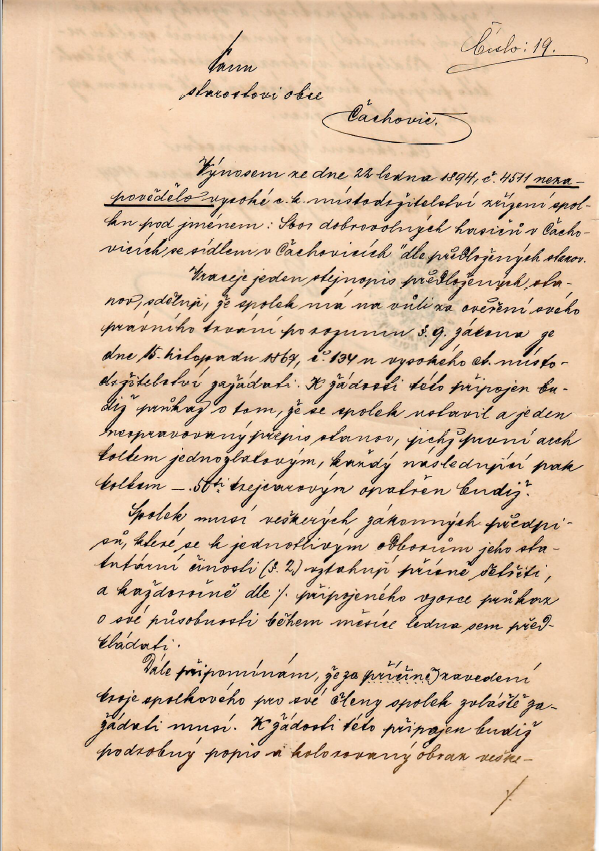 Číslo: 19.
Panu
starostovi obce
Čachovic.
Výnosem ze dne 22 ledna 1894, č. 4511 neza-
povědělo vysoké c. k. místodržitelství zřízení spol-
ku pod jménem: Sbor dobrovolných hasičů v Čácho-
vicích, se sídlem v Čachovicích" dle předložených stanov.
Vraceje jeden stejnopis předložených sta-
nov, sděluji, že spolek má na vůli za ověření svého
právního trvání po rozumu §. 9. zákona ze
dne 15. listopadu 1867, č. 134 u vysokého ct. místo-
držitelství zažádati. K žádosti této připojen bu-
diž průkaz o tom, že se spolek ustavil a jeden
neopravovaný přepis stanov, jichž první arch
kolkem jednozlatovým, každý následující pak
kolkem — 50ti krejcarovým opatřen budiž.
Spolek musí veškerých zákonných předpi-
sů, které se k jednotlivým odborům jeho sta-
tutární činosti (§. 2.) vztahují přísně šetřiti,
a každoročně dle ./. připojeného vzorce průkaz
o své působnosti během měsíce ledna sem před-
kládati.
Dále připomínám, že za příčinou zavedení
kroje spolkového pro své členy spolek zvláště za-
žádati musí. K žádosti této připojen budiž
podrobný popis a kolorovaný obraz veške-
./.